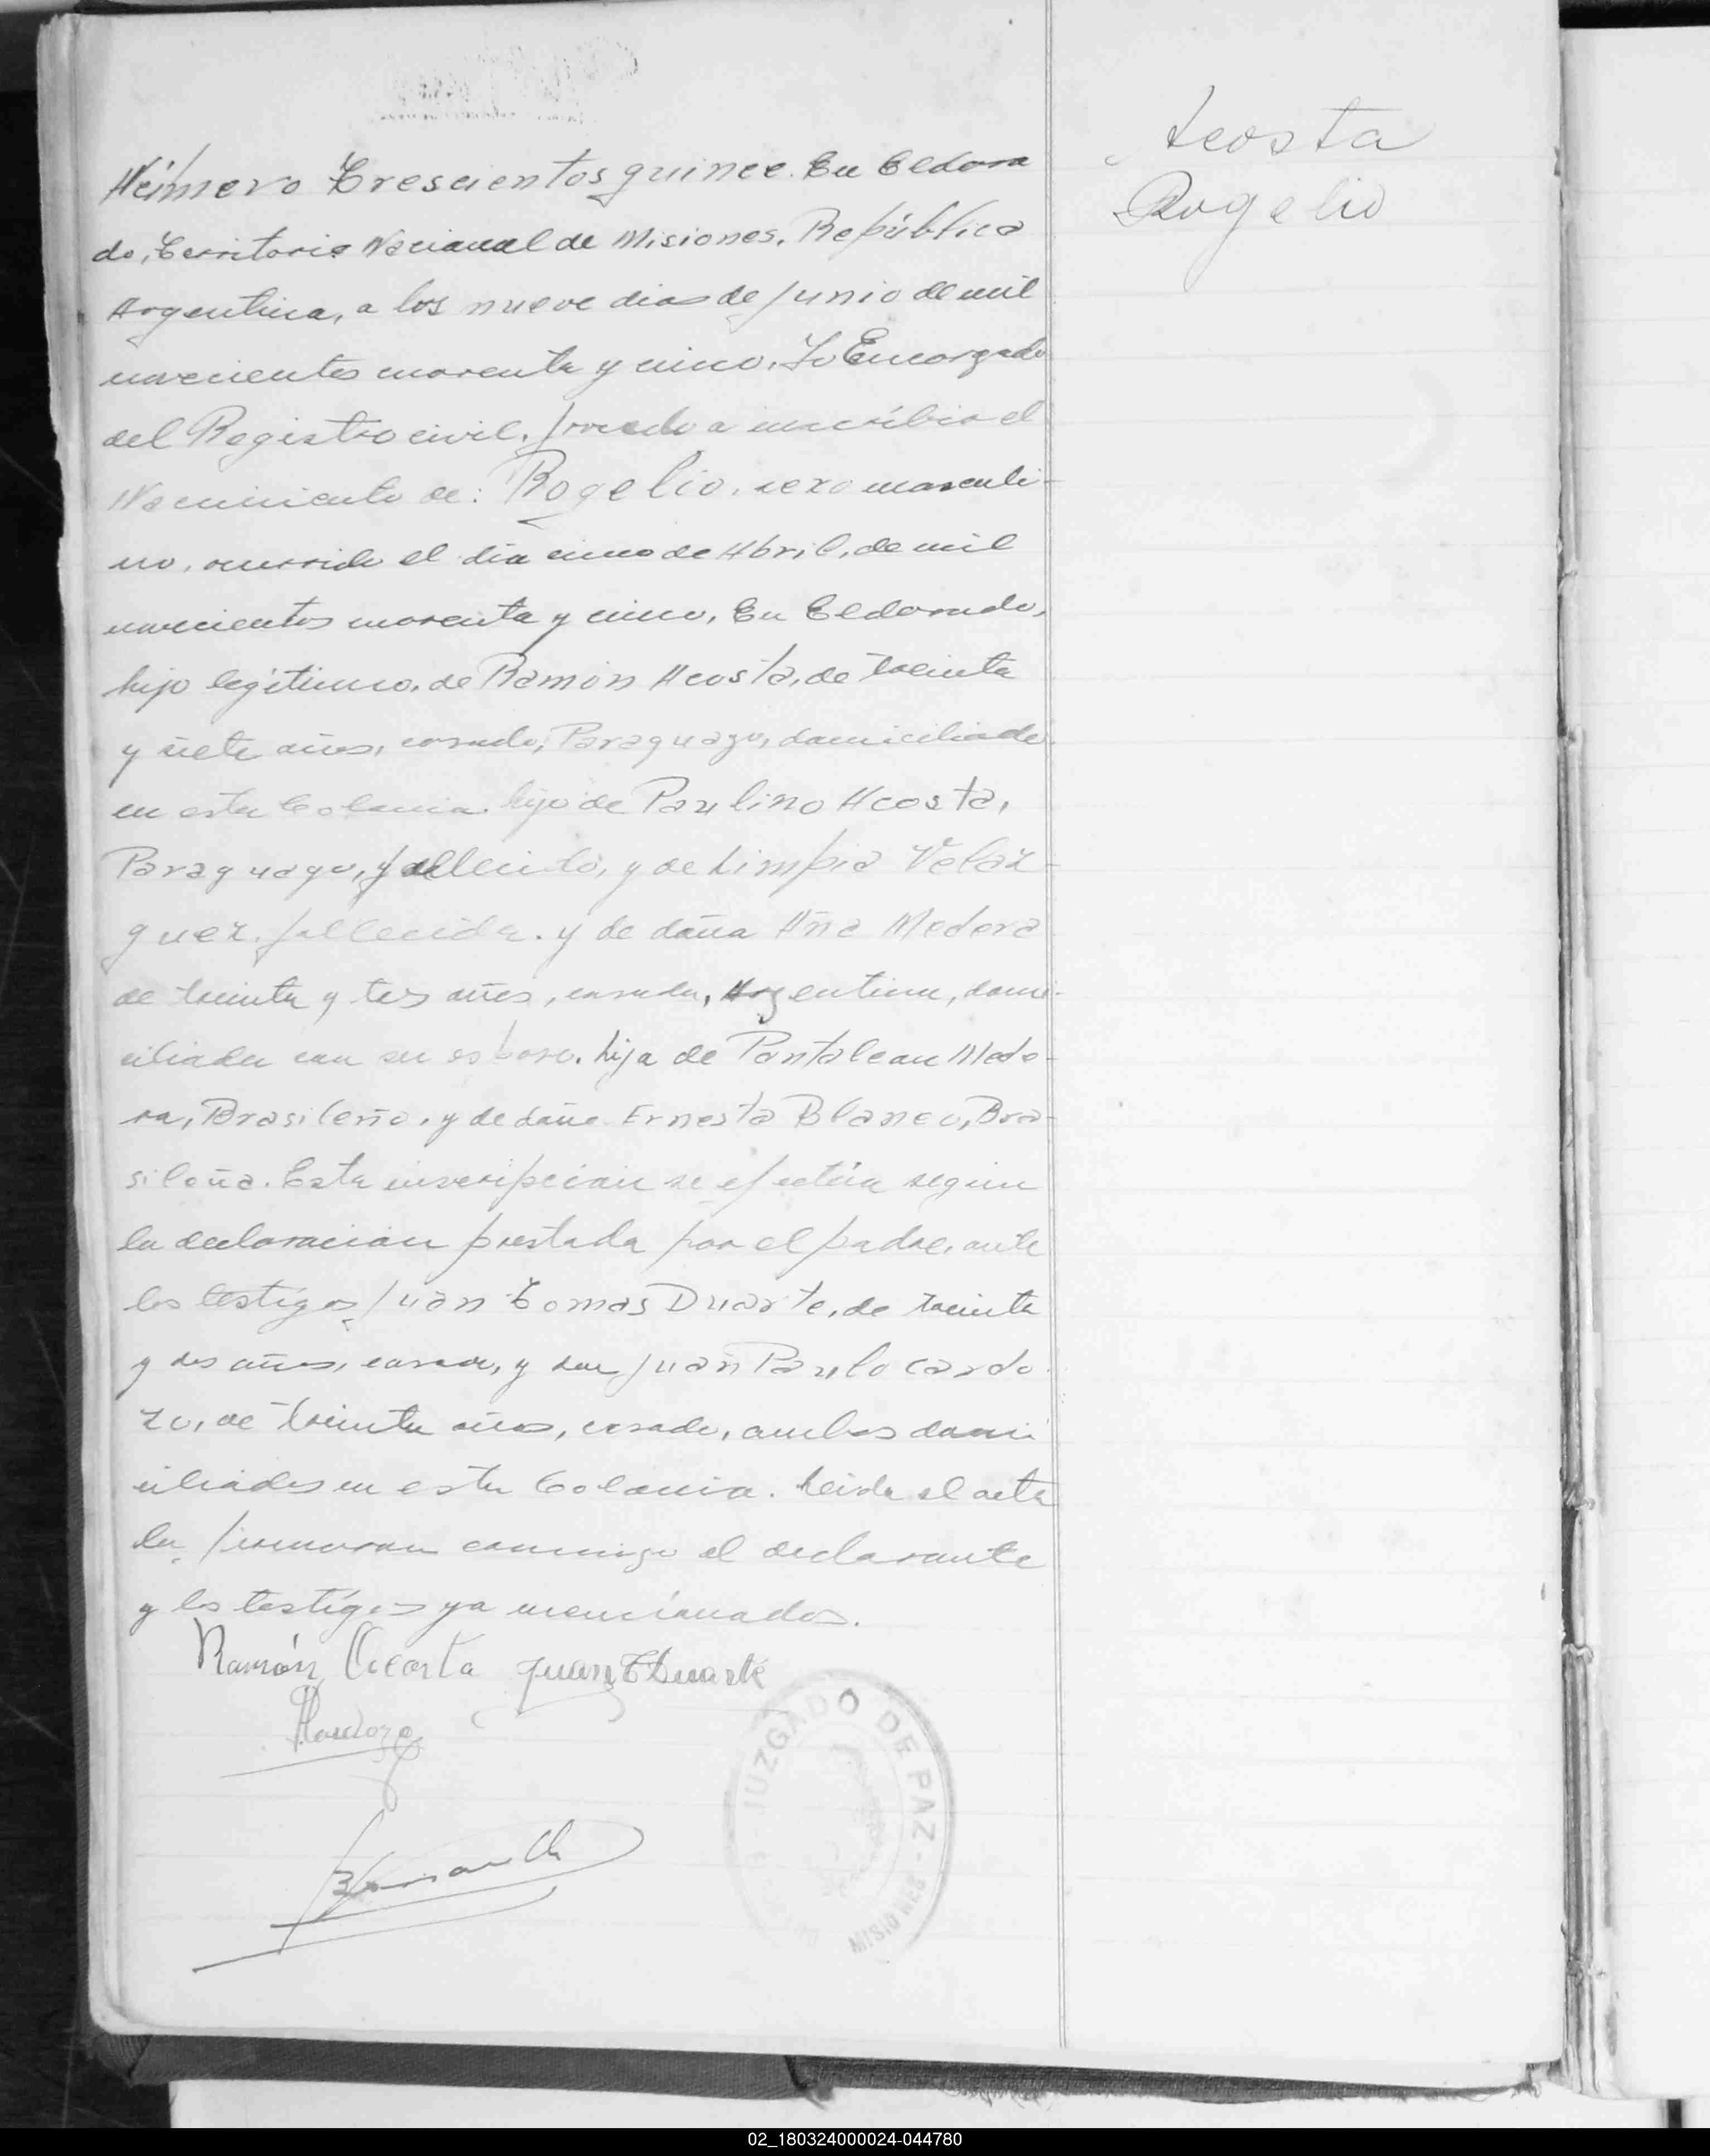 Acosta
Rogelio
Número Trescientos quince. En Eldora
do, Territorio Nacional de Misiones, República
Argentina, a los nueve dias de Junio de mil
novecientos cuarenta y cinco. Yo Encargado
del Registro civil, procedo a inscribir el
Nacimiento de: Rogelio, sexo masculi-
no, ocurrido el día cinco de Abril, de mil
novecientos cuarenta y cinco, En Eldorado,
hijo legítimo, de Ramón Acosta, de treinta
y siete años, casado, Paraguayo, domiciliado
en esta Colonia. hijo de Paulino Acosta,
Paraguayo, fallecido, y de Limpia Velaz-
quez, fallecida. y de doña Ana Medera
de treinta y tes años, casada, Argentina, domi-
ciliada con su esposo. hija de Pantaleon Mede-
ra, Brasileño, y de doña Ernesta Blanco, Bra-
sileña. Esta inscripción se efectúa según
la declaración prestada por el padre, ante
los testigos Juan Tomas Duarte, de treinta
y dos años, casado, y don Juan Paulo Cardo
zo, de treinta años, casado, ambos domi
ciliados en esta Colonia. Leida el acta
la firmaron conmigo el declarante
y los testigos ya mencionados.
Ramón Acosta Juan T Duarte
PCardozo
JUZGADO DE PAZ - MISIONES
02_180324000024-044780